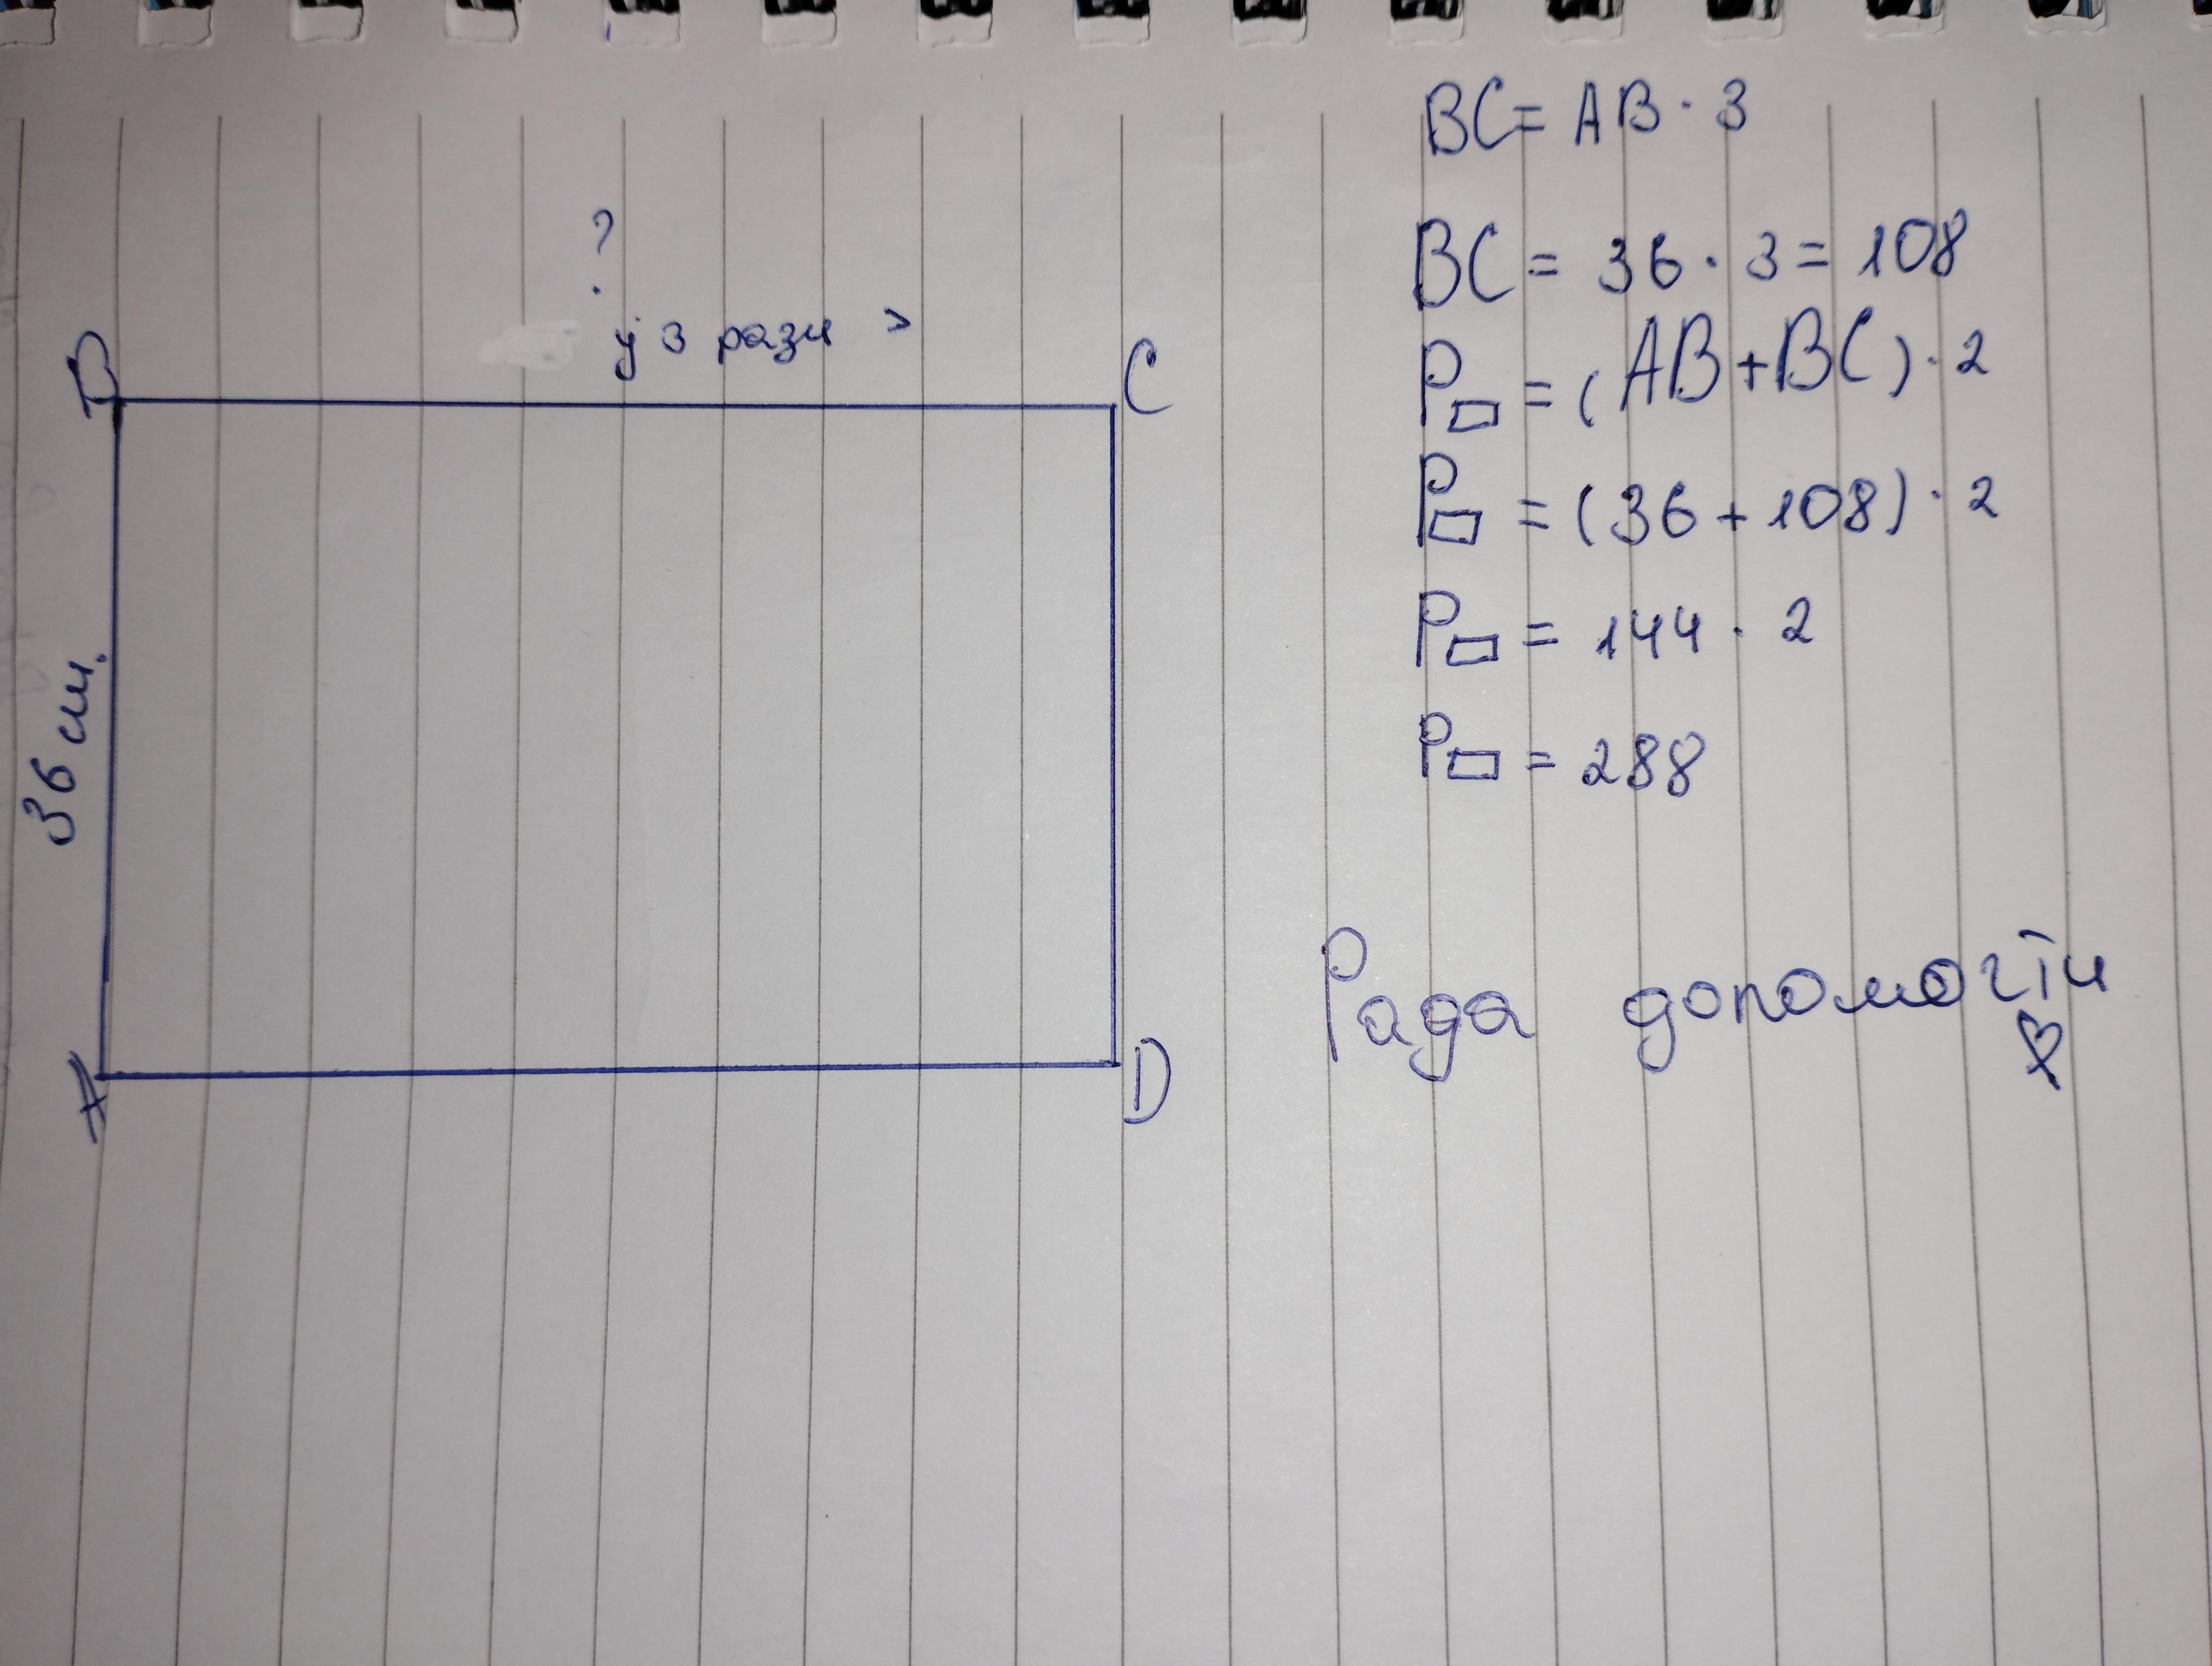 ?
у 3 рази >
B
C
36 см.
A
D
BC = AB · 3
BC = 36 · 3 = 108
P▭ = (AB + BC) · 2
P▭ = (36 + 108) · 2
P▭ = 144 · 2
P▭ = 288
Рада допомогти